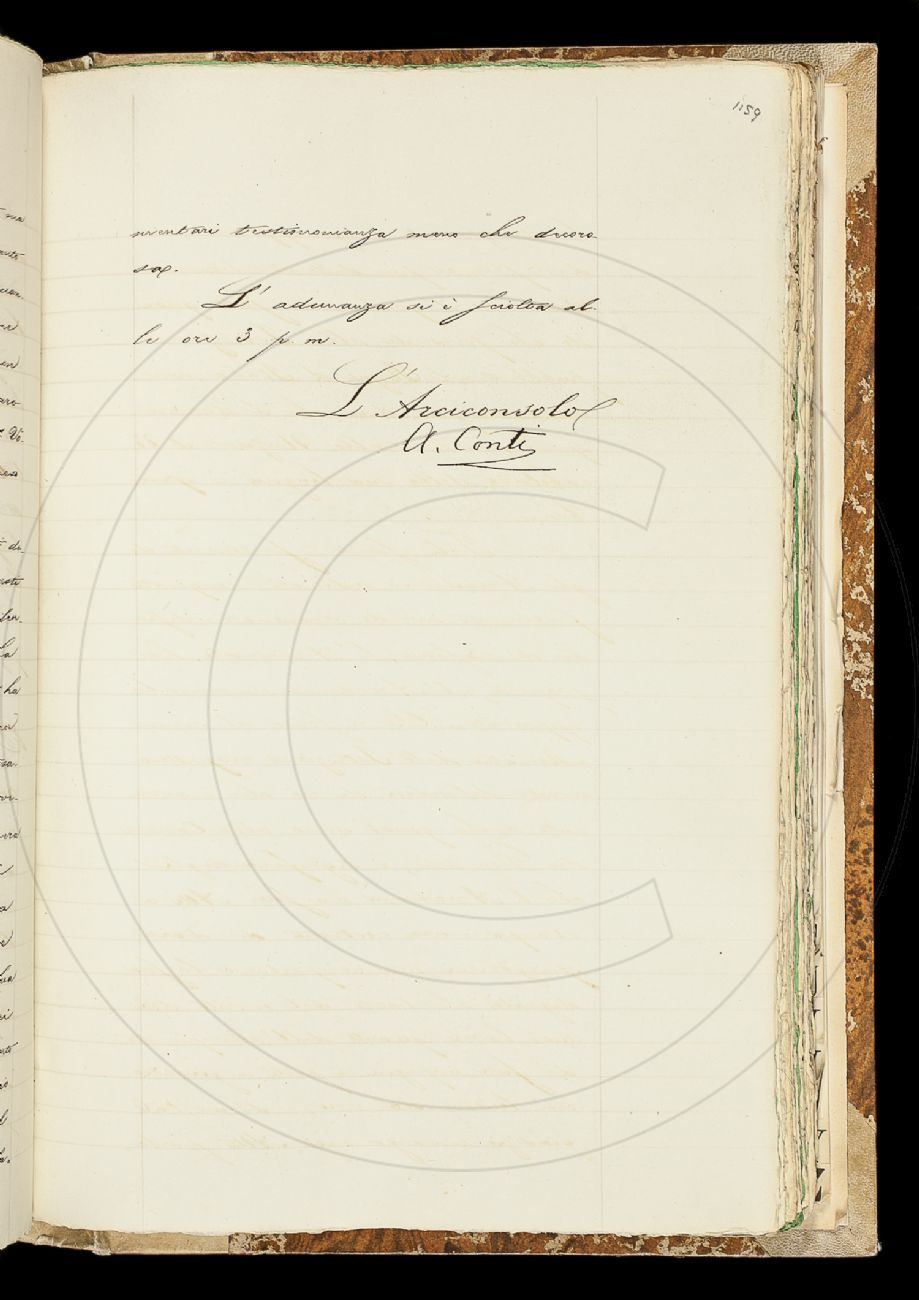 1159
mentari testimonianza meno che decoro
sa.
L' adunanza si è sciolta al-
le ore 3 p. m.
L' Arciconsolo
A. Conti